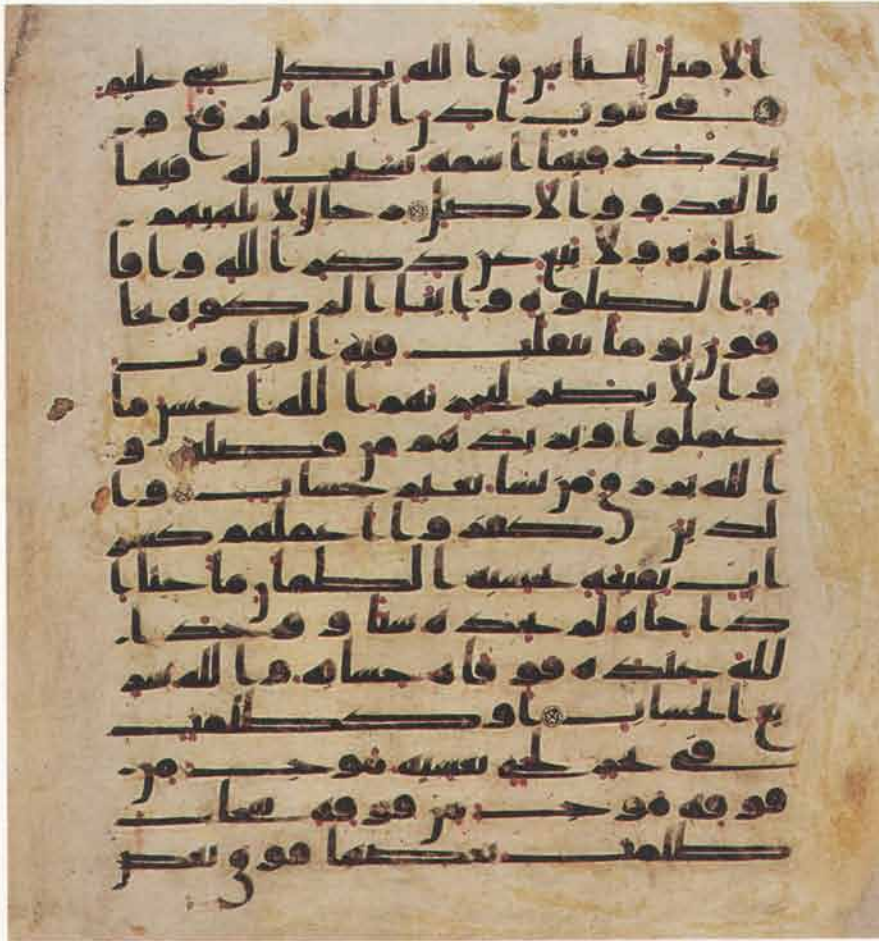 الامثل للناس والله بكل شي عليم
في بيوت اذن الله ان ترفع و
يذكر فيها اسمه يسبح له فيها
بالغدو والاصل رجال لا تلهيهم
تجارة ولا بيع عن ذكر الله واقا
م الصلوة وايتا الزكوة يخا
فون يوما تتقلب فيه القلوب
والابصر ليجزيهم الله احسن ما
عملوا ويزيدهم من فضله و
الله يرزق من يشا بغير حساب وا
لذين كفروا اعملهم كسر
اب بقيعة يحسبه الظمان ما حتى ا
ذا جاه لم يجده شيا و وجد ا
لله عنده فوفاه حسابه والله سر
يع الحساب او كظلمت
في بحر لجي يغشيه موج من
فوقه موج من فوقه سحاب
ظلمت بعضها فوق بعض